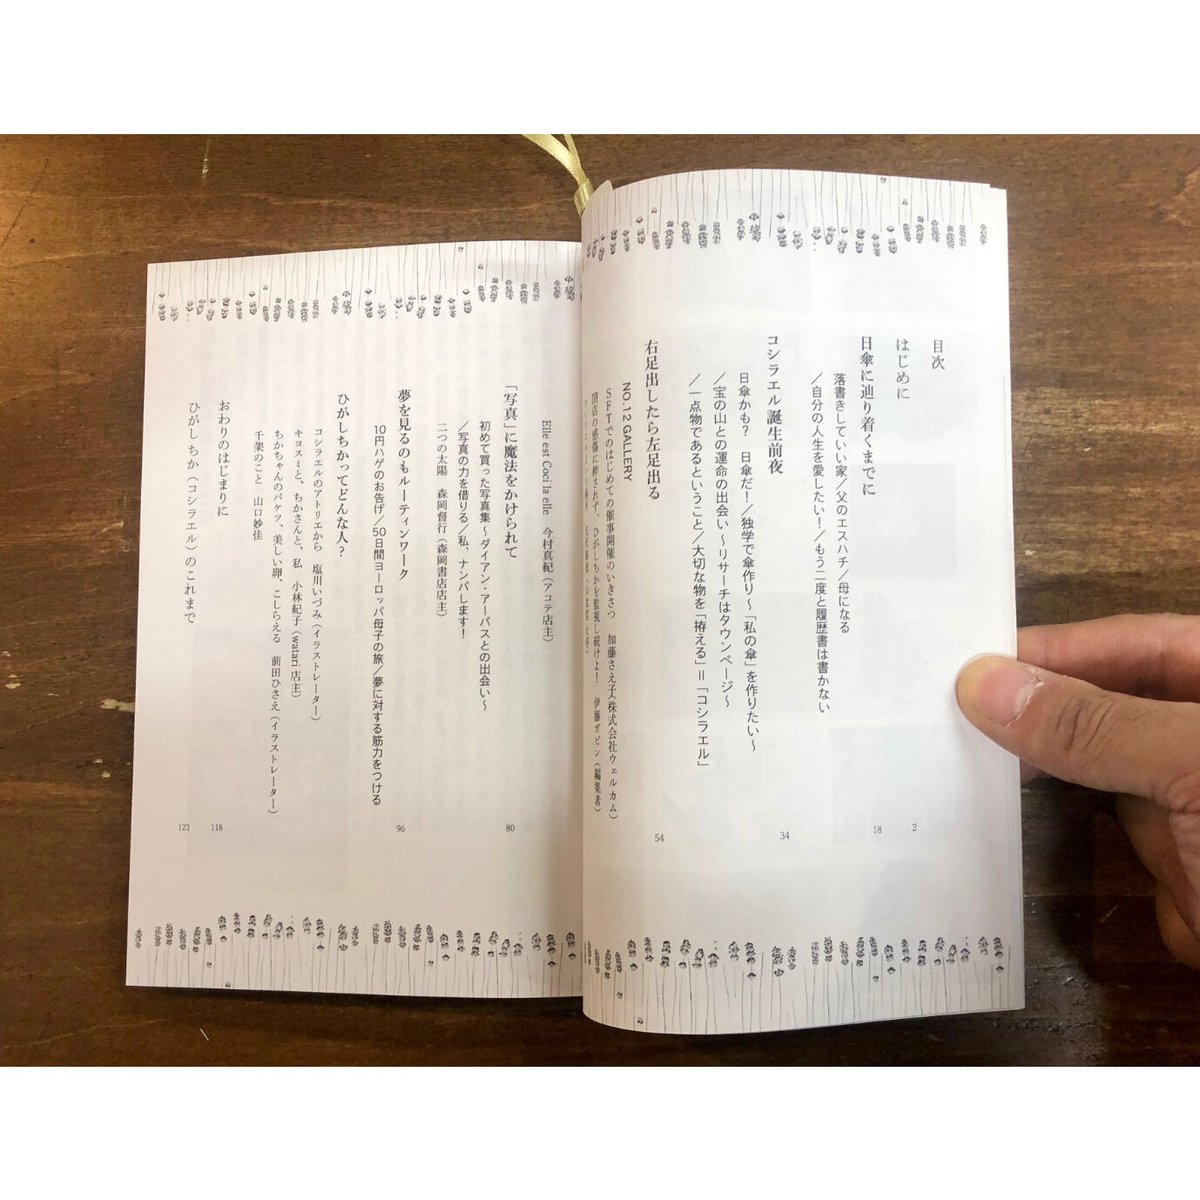 目次
はじめに
2
日傘に辿り着くまでに
18
落書きしていい家／父のエスハチ／母になる
／自分の人生を愛したい！／もう二度と履歴書は書かない
コシラエル誕生前夜
34
日傘かも？　日傘だ！／独学で傘作り～「私の傘」を作りたい～
／宝の山との運命の出会い～リサーチはタウンページ～
／一点物であるということ／大切な物を「拵える」＝「コシラエル」
右足出したら左足出る
54
NO.12 GALLERY
SFTでのはじめての催事開催のいきさつ　加藤さえ子（株式会社ウェルカム）
閉店の感傷に絆されず、ひがしちかを監視し続けよ！　伊藤ガビン（編集者）
Elle est Coci la elle　今村真紀（アコテ店主）
「写真」に魔法をかけられて
80
初めて買った写真集～ダイアン・アーバスとの出会い～
／写真の力を借りる／私、ナンパします！
二つの太陽　森岡督行（森岡書店店主）
夢を見るのもルーティンワーク
96
10円ハゲのお告げ／50日間ヨーロッパ母子の旅／夢に対する筋力をつける
ひがしちかってどんな人？
コシラエルのアトリエから　塩川いづみ（イラストレーター）
キヨスミと、ちかさんと、私　小林紀子（watari 店主）
ちかちゃんのバケツ、美しい卵、こしらえる　前田ひさえ（イラストレーター）
千架のこと　山口妙佳
おわりのはじまりに
118
ひがしちか（コシラエル）のこれまで
123